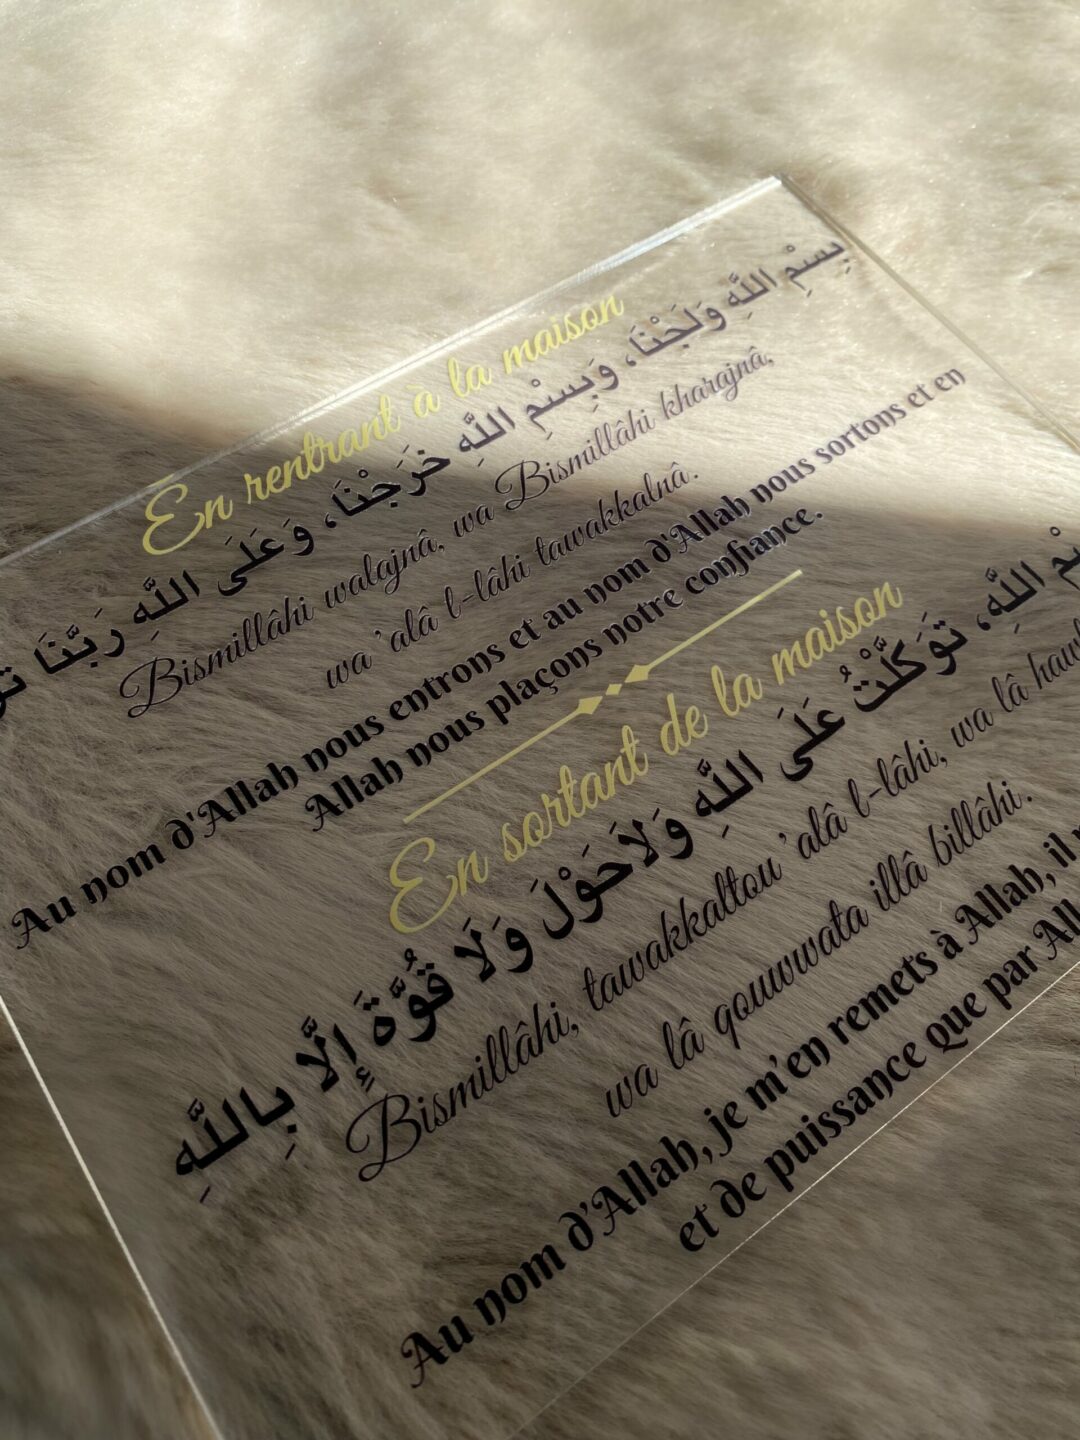 En rentrant à la maison
بِسْمِ اللَّهِ وَلَجْنَا، وَبِسْمِ اللَّهِ خَرَجْنَا، وَعَلَى اللَّهِ رَبَّنَا
Bismillâhi walajnâ, wa Bismillâhi kharajnâ,
wa 'alâ l-lâhi tawakkalnâ.
Au nom d'Allah nous entrons et au nom d'Allah nous sortons et en
Allah nous plaçons notre confiance.
En sortant de la maison
اللَّهِ، تَوَكَّلْتُ عَلَى اللَّهِ وَلاَحَوْلَ وَلَا قُوَّةَ إِلَّا بِاللَّهِ
Bismillâhi, tawakkaltou 'alâ l-lâhi, wa lâ
wa lâ qouwwata illâ billâhi.
Au nom d'Allah, je m'en remets à Allah, il
et de puissance que par